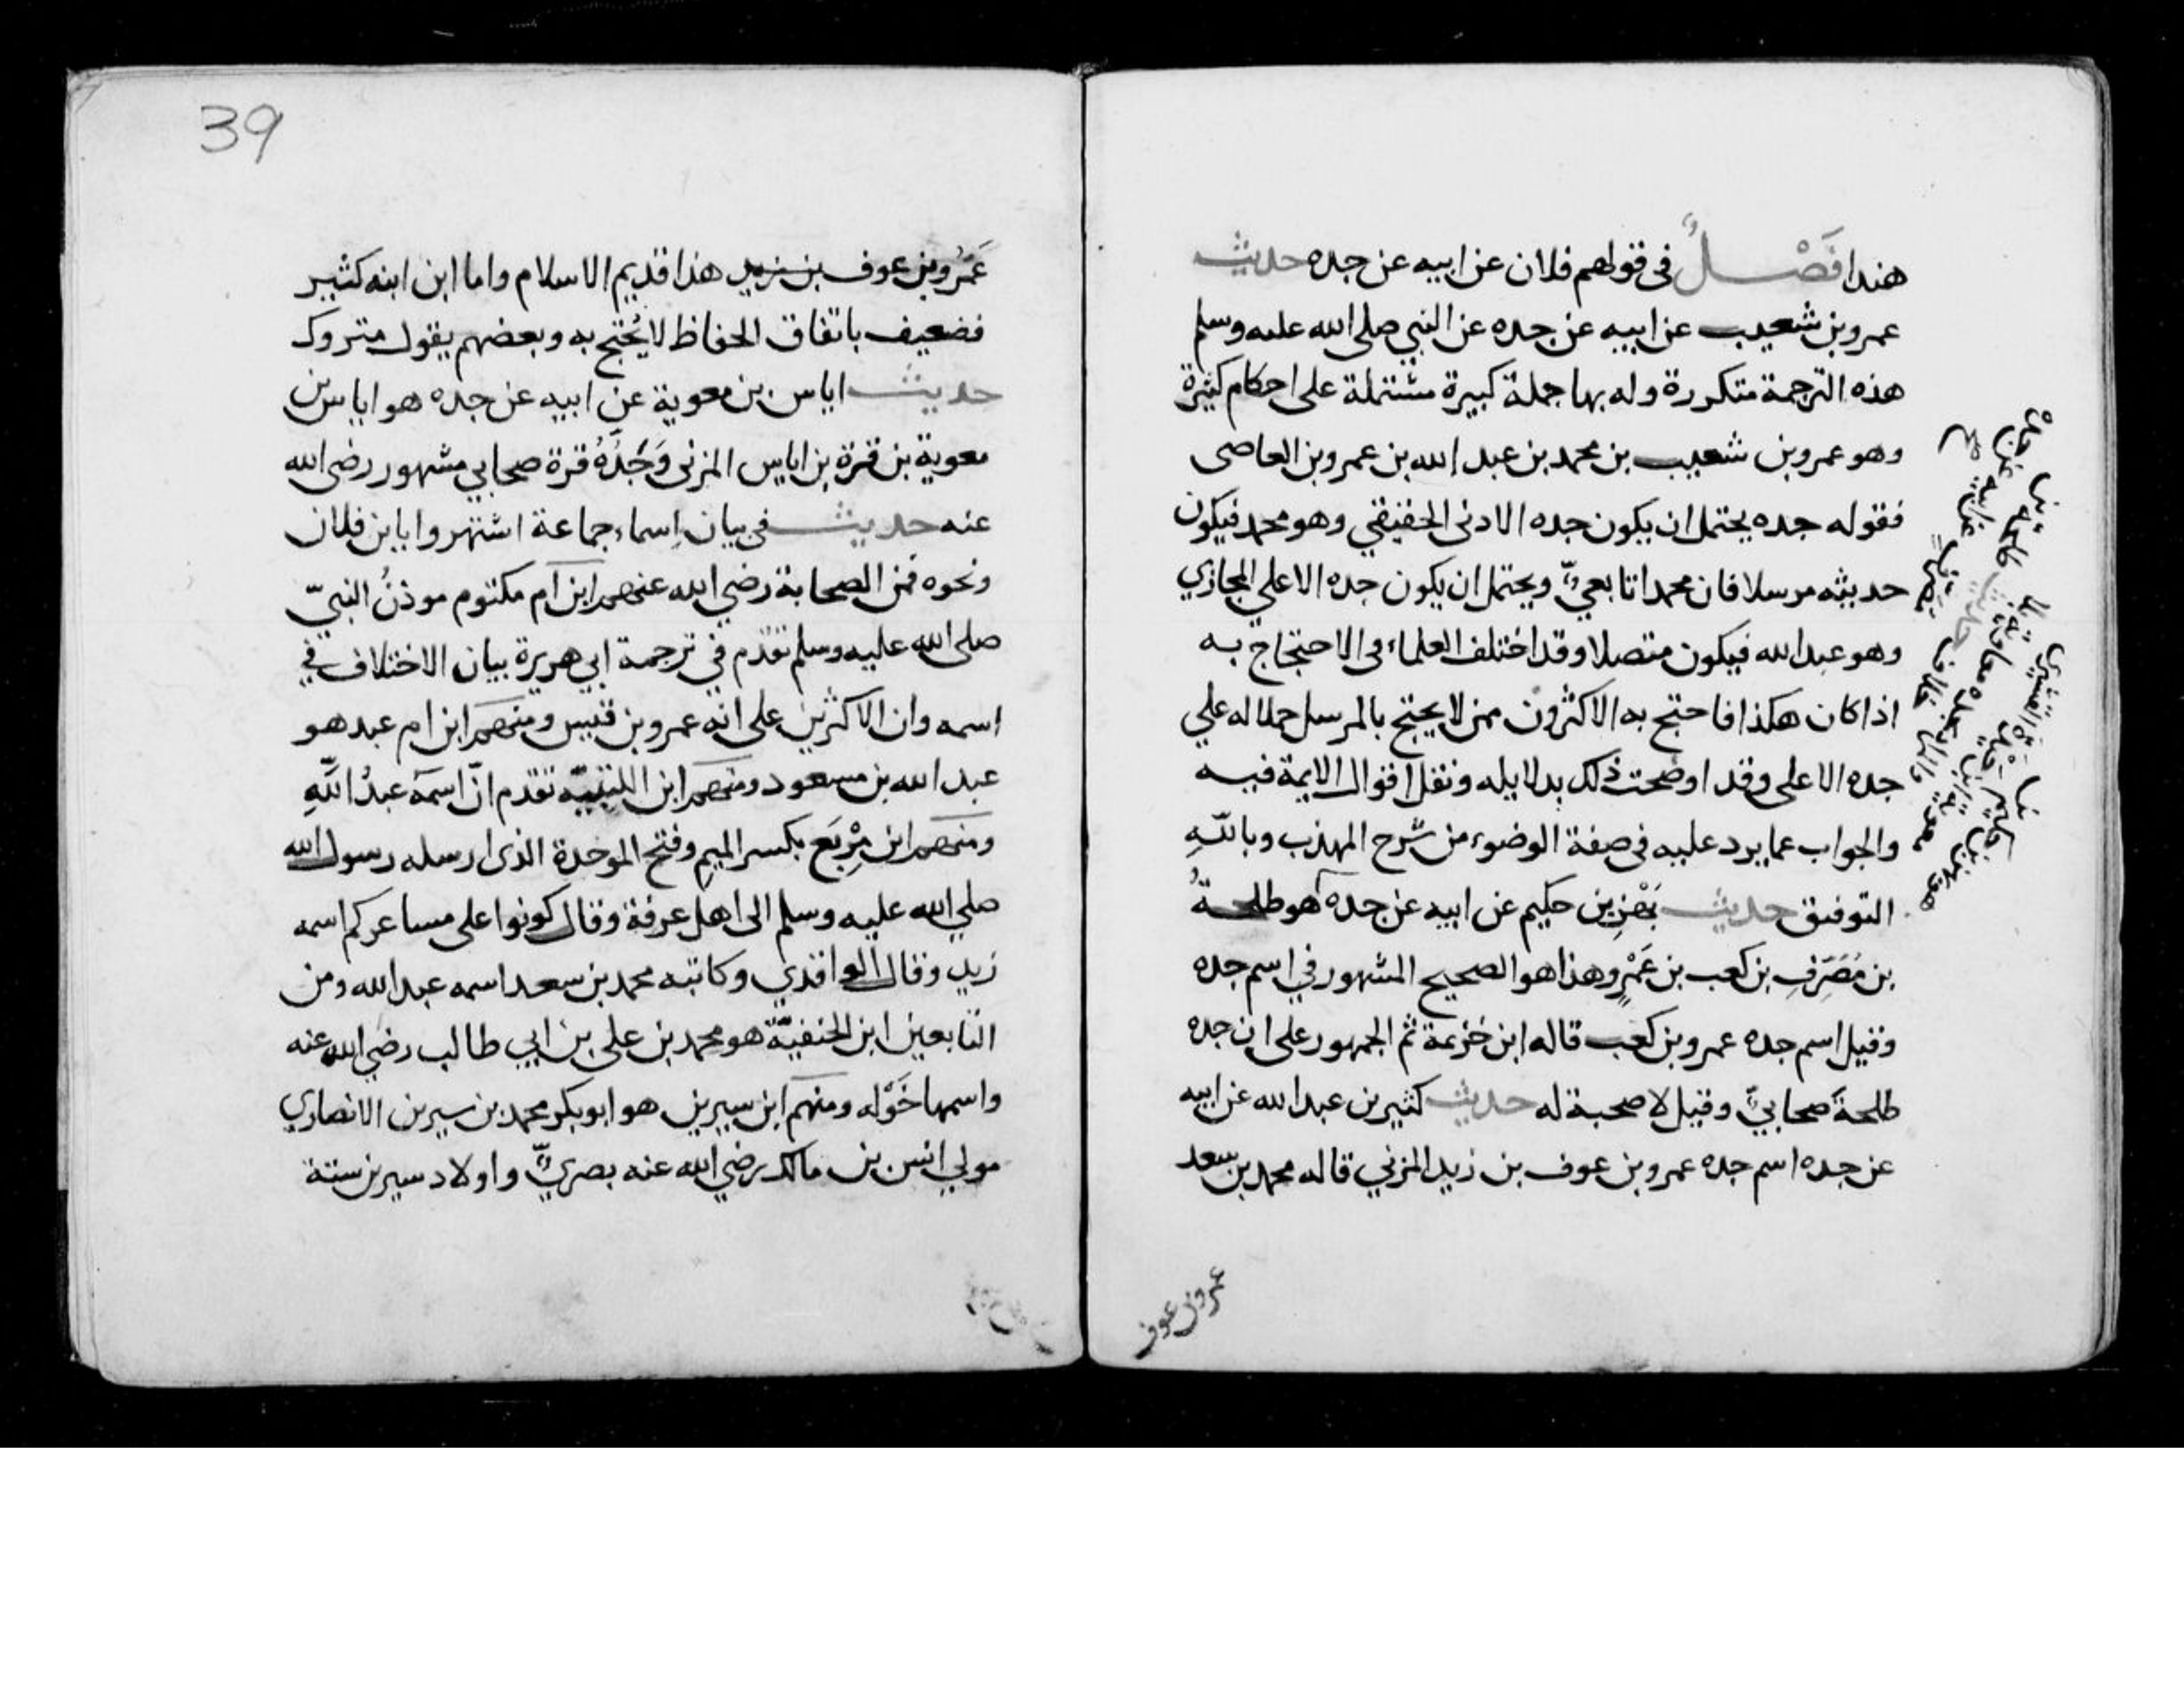 هندا فَصْلٌ في قولهم فلان عن ابيه عن جده حديث
عمرو بن شعيب عن ابيه عن جده عن النبي صلى الله عليه وسلم
هذه الترجمة متكررة وله بها جملة كبيرة مشتملة على احكام كثيرة
وهو عمرو بن شعيب بن محمد بن عبد الله بن عمرو بن العاصى
فقوله جده يحتمل ان يكون جده الادنى الحقيقي وهو محمد فيكون
حديثه مرسلا فان محمدا تابعيٌّ ويحتمل ان يكون جده الاعلي المجازي
وهو عبد الله فيكون متصلا وقد اختلف العلماء في الاحتجاج به
اذا كان هكذا فاحتج به الاكثرون ممن لا يحتج بالمرسل حملا له علي
جده الاعلى وقد اوضحت ذلك بدلايله ونقل اقوال الايمة فيه
والجواب عما يرد عليه في صفة الوضوء من شرح المهذب وباللّهِ
التوفيق حديث بَهْزِ بن حكيم عن ابيه عن جده هو طلحةُ
بن مُصَرِّفِ بن كعب بن عَمْرٍو وهذا هو الصحيح المشهور في اسم جده
وقيل اسم جده عمرو بن كعب قاله ابن خزيمة ثم الجمهور على ان جده
طلحةَ صحابيٌّ وقيل لا صحبة له حديث كثير بن عبد الله عن ابيه
عن جده اسم جده عمرو بن عوف بن زيد المزني قاله محمد بن سعد
عمرو بن عوف
39
عَمْرُو بن عوف بن زيد هذا قديم الاسلام واما ابن ابنه كثير
فضعيف باتفاق الحفاظ لا يُحتج به وبعضهم يقول متروك
حديث اياس بن معوية عن ابيه عن جده هو اياس بن
معوية بن قرة بن اياس المزنى وَجَدُّهُ قرة صحابي مشهور رضى الله
عنه حديث في بيان اسماء جماعة اشتهروا بابن فلان
ونحوه فمن الصحابة رضي الله عنهم ابن ام مكتوم موذنُ النبيّ
صلى الله عليه وسلم تقدم في ترجمة ابي هريرة بيان الاختلاف في
اسمه وان الاكثرين على انه عمرو بن قيس ومنهم ابن ام عبد هو
عبد الله بن مسعود ومنهم ابن اللتبيّة تقدم انّ اسمَهُ عبدُ اللّهِ
ومنهم ابن مِرْبَع بكسر الميمِ وفتح الموحدة الذى ارسله رسول الله
صلي الله عليه وسلم الى اهل عرفة وقال كونوا على مساعركم اسمه
زيد وقال الواقدي وكاتبه محمد بن سعد اسمه عبد الله ومن
التابعين ابن الحنفيّة هو محمد بن على بن ابي طالب رضي الله عنه
واسمها خَوْله ومنهم ابن سيرين هو ابو بكر محمد بن سيرين الانصاري
مولي انس بن مالك رضي الله عنه بصريٌّ واولاد سيرين ستة